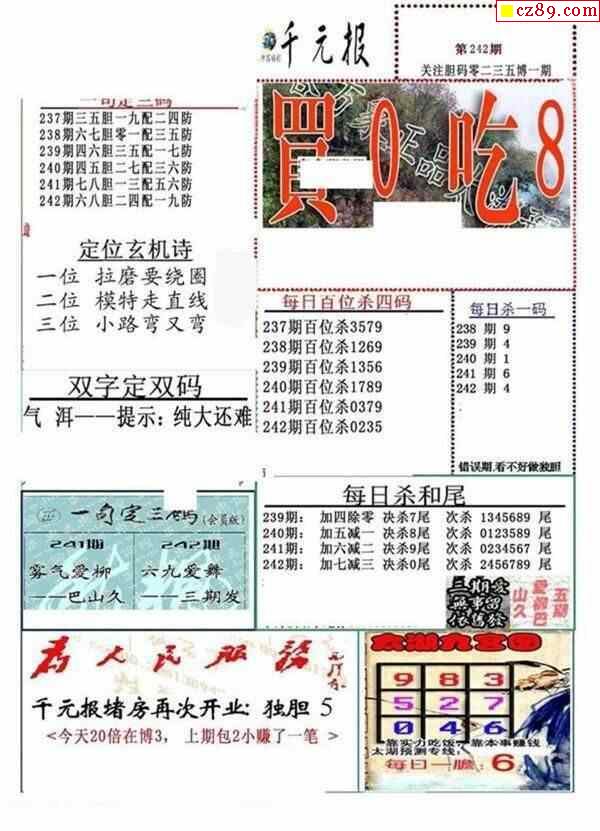 cz89.com
千元报
第242期
关注胆码零二三五博一期
一句定三码
237期三五胆一九配二四防
238期六七胆零一配三五防
239期四六胆三五配一七防
240期四五胆二七配三六防
241期七八胆一三配五六防
242期六八胆二四配一九防
買0吃8
定位玄机诗
一位 拉磨要绕圈
二位 模特走直线
三位 小路弯又弯
每日百位杀四码
237期百位杀3579
238期百位杀1269
239期百位杀1356
240期百位杀1789
241期百位杀0379
242期百位杀0235
每日杀一码
238 期 9
239 期 4
240 期 1
241 期 6
242 期 4
错误期,看不好做独胆
双字定双码
气 洱——提示:纯大还难
一句定三码(会员版)
241期
雾气爱柳
——巴山久
242期
六九爱舞
——三期发
每日杀和尾
239期: 加四除零 决杀7尾 次杀 1345689 尾
240期: 加五减一 决杀8尾 次杀 0123589 尾
241期: 加六减二 决杀9尾 次杀 0234567 尾
242期: 加七减三 决杀0尾 次杀 2456789 尾
三期爱
五期
爱柳巴
山久
为人民服务
千元报堵房再次开业: 独胆 5
<今天20倍在博3, 上期包2小赚了一笔>
太湖九宫图
9 8 3
5 2 7
0 4 6
靠实力吃饭,靠本事赚钱
太湖预测专线:
每日一胆: 6